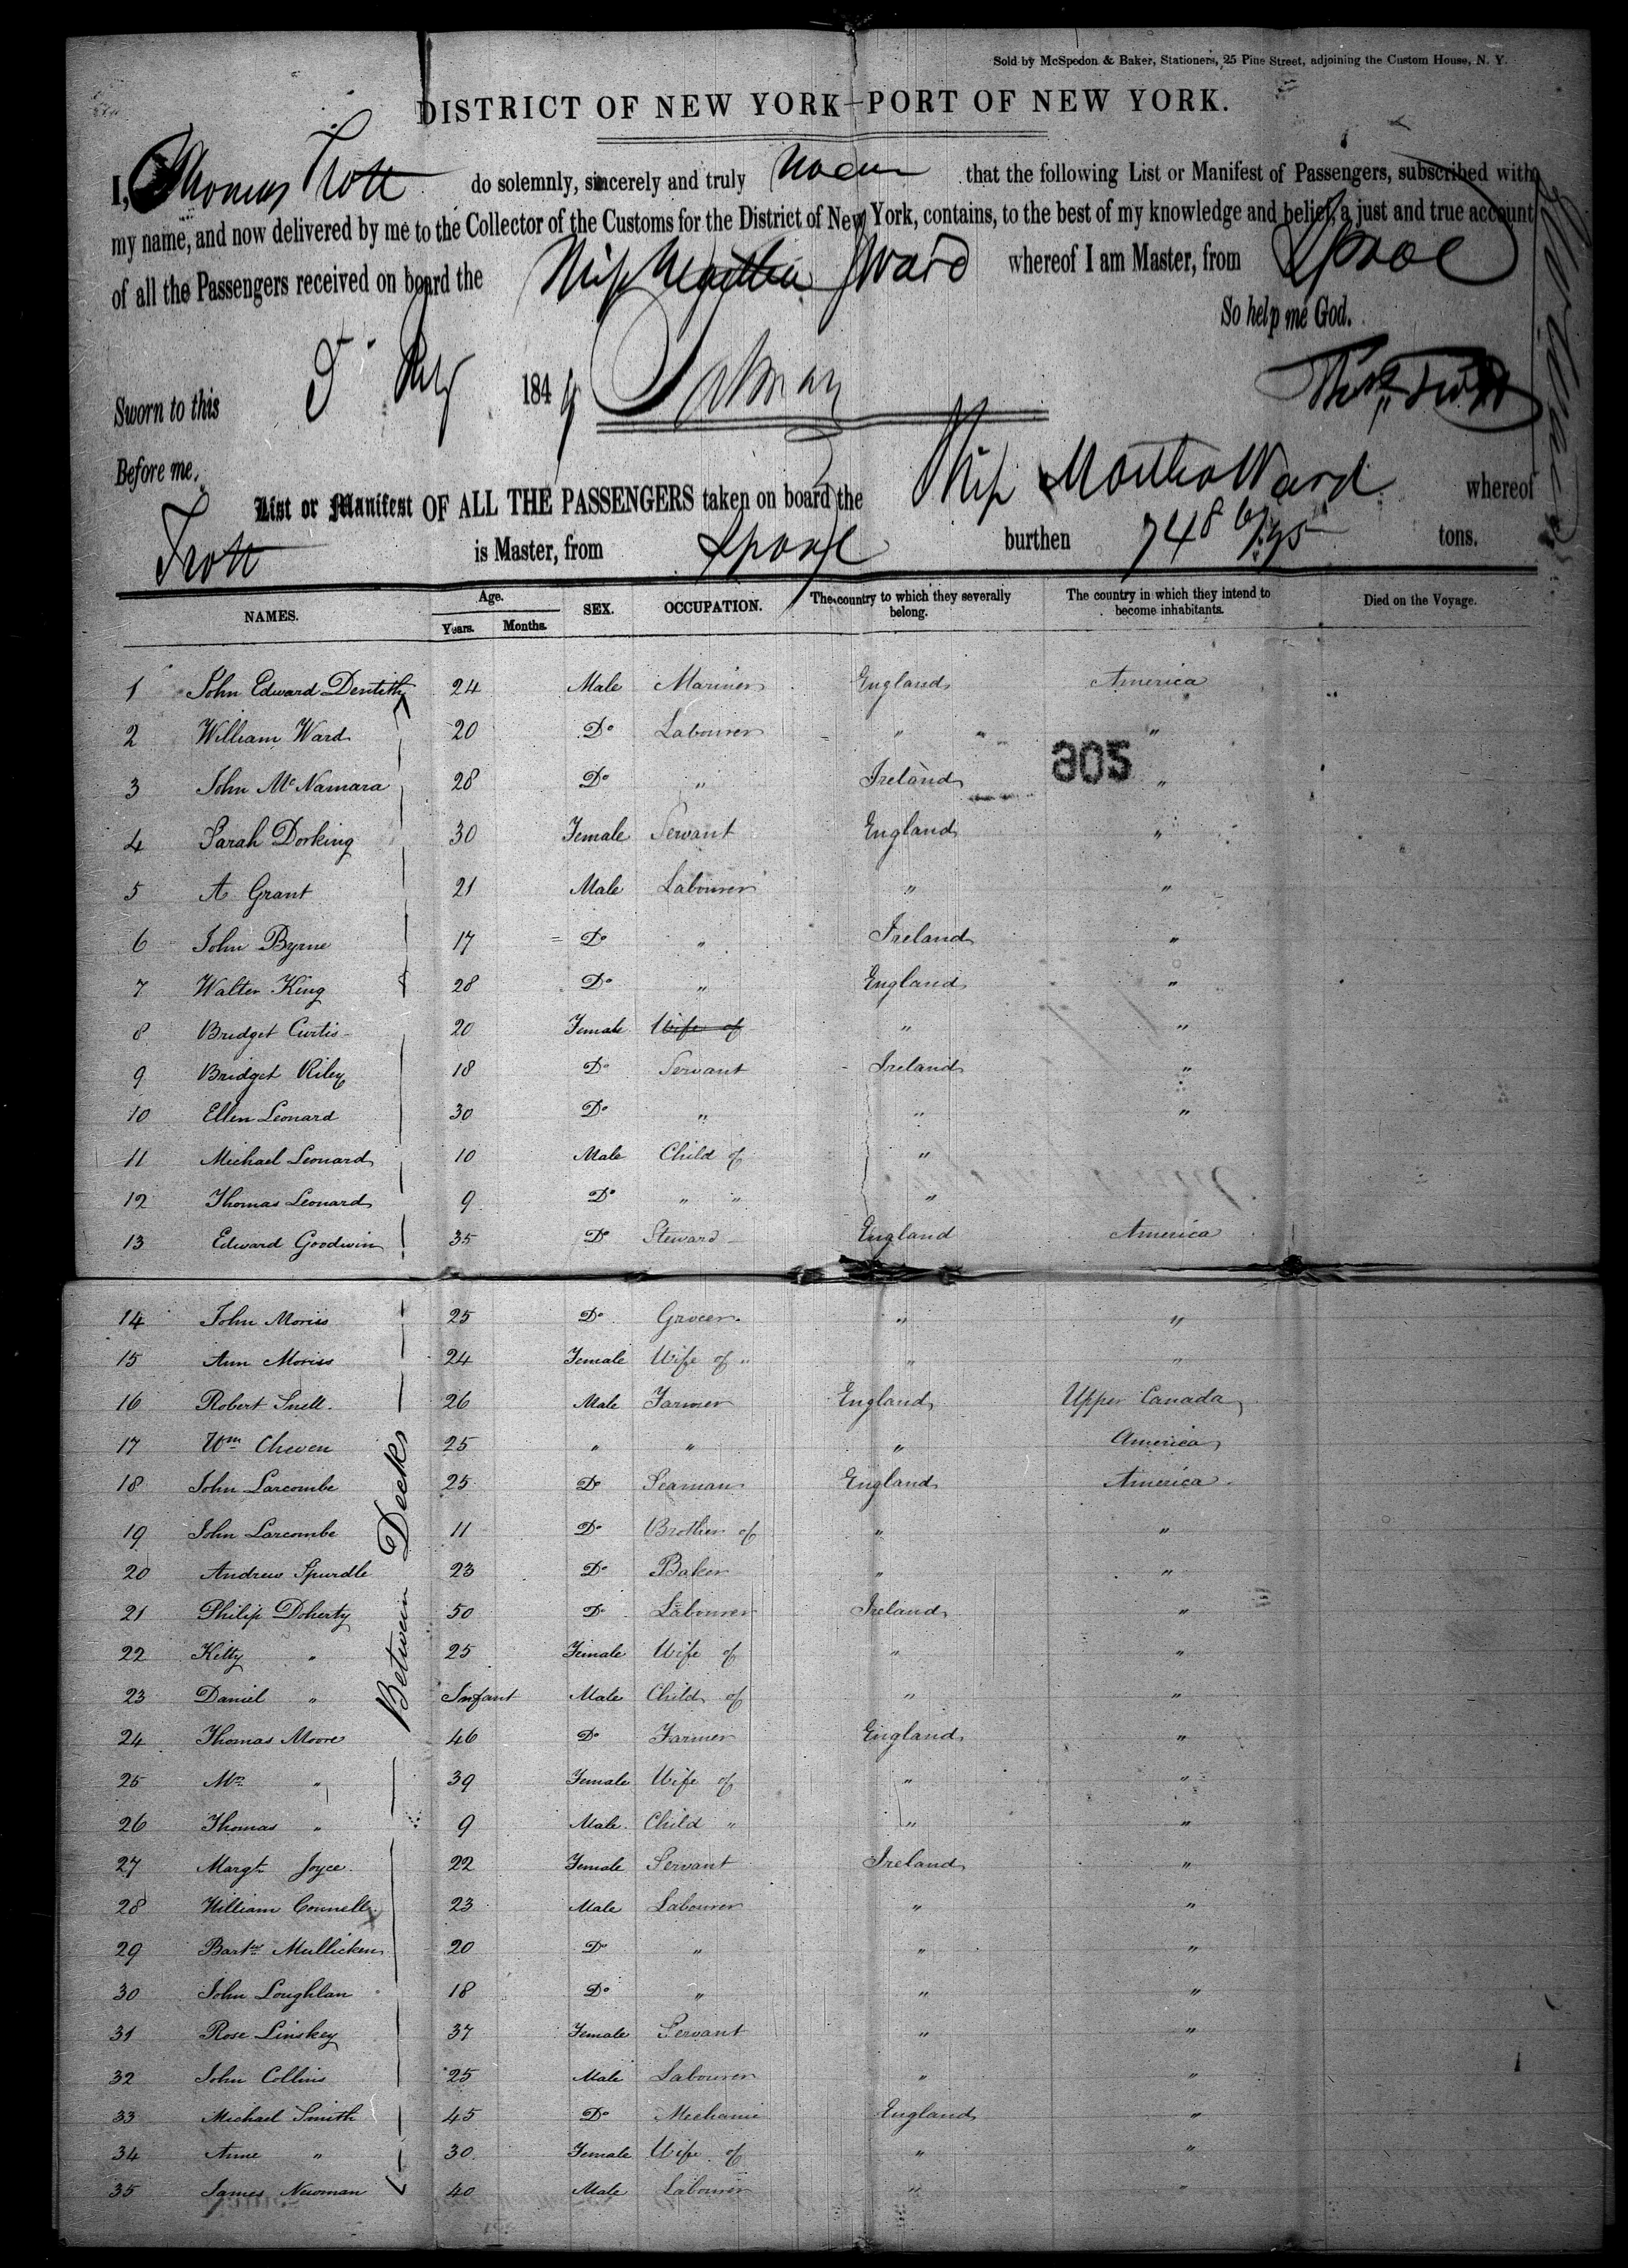 Sold by McSpedon & Baker, Stationers, 25 Pine Street, adjoining the Custom House, N. Y.
DISTRICT OF NEW YORK—PORT OF NEW YORK.
I, Thomas Trott do solemnly, sincerely and truly swear that the following List or Manifest of Passengers, subscribed with
my name, and now delivered by me to the Collector of the Customs for the District of New York, contains, to the best of my knowledge and belief, a just and true account
of all the Passengers received on board the Ship Ward whereof I am Master, from Lpool
So help me God.
Sworn to this 184
Before me,
List or Manifest OF ALL THE PASSENGERS taken on board the Ship Martha Ward whereof
Trott is Master, from Lpool burthen 748 tons.
NAMES. Age. Years. Months. SEX. OCCUPATION. The country to which they severally belong. The country in which they intend to become inhabitants. Died on the Voyage.
1 John Edward Dentith 24 Male Mariner England America
2 William Ward 20 Do Labourer " "
305
3 John McNamara 28 Do " Ireland "
4 Sarah Dorking 30 Female Servant England "
5 A Grant 21 Male Labourer " "
6 John Byrne 17 Do " Ireland "
7 Walter King 28 Do " England "
8 Bridget Curtis 20 Female Wife of " "
9 Bridget Riley 18 Do Servant Ireland "
10 Ellen Leonard 30 Do " " "
11 Michael Leonard 10 Male Child of "
12 Thomas Leonard 9 Do " " "
13 Edward Goodwin 35 Do Steward England America
14 John Moriss 25 Do Grocer " "
15 Ann Moriss 24 Female Wife of " " "
16 Robert Snell 26 Male Farmer England Upper Canada
17 Wm Cheven 25 " " " America
18 John Larcombe 25 Do Seaman England America
19 John Larcombe 11 Do Brother of " "
20 Andrew Spurdle 23 Do Baker " "
21 Philip Doherty 50 Do Labourer Ireland "
22 Kitty " 25 Female Wife of " "
23 Daniel " Infant Male Child of " "
24 Thomas Moore 46 Do Farmer England "
25 Mrs " 39 Female Wife of " "
26 Thomas " 9 Male Child " " "
27 Margt Joyce 22 Female Servant Ireland "
28 William Connell 23 Male Labourer " "
29 Bartw Mullicken 20 Do " " "
30 John Loughlan 18 Do " " "
31 Rose Linskey 37 Female Servant " "
32 John Collins 25 Male Labourer " "
33 Michael Smith 45 Do Mechanic England "
34 Anne " 30 Female Wife of " "
35 James Newman 40 Male Labourer " "
Between Decks